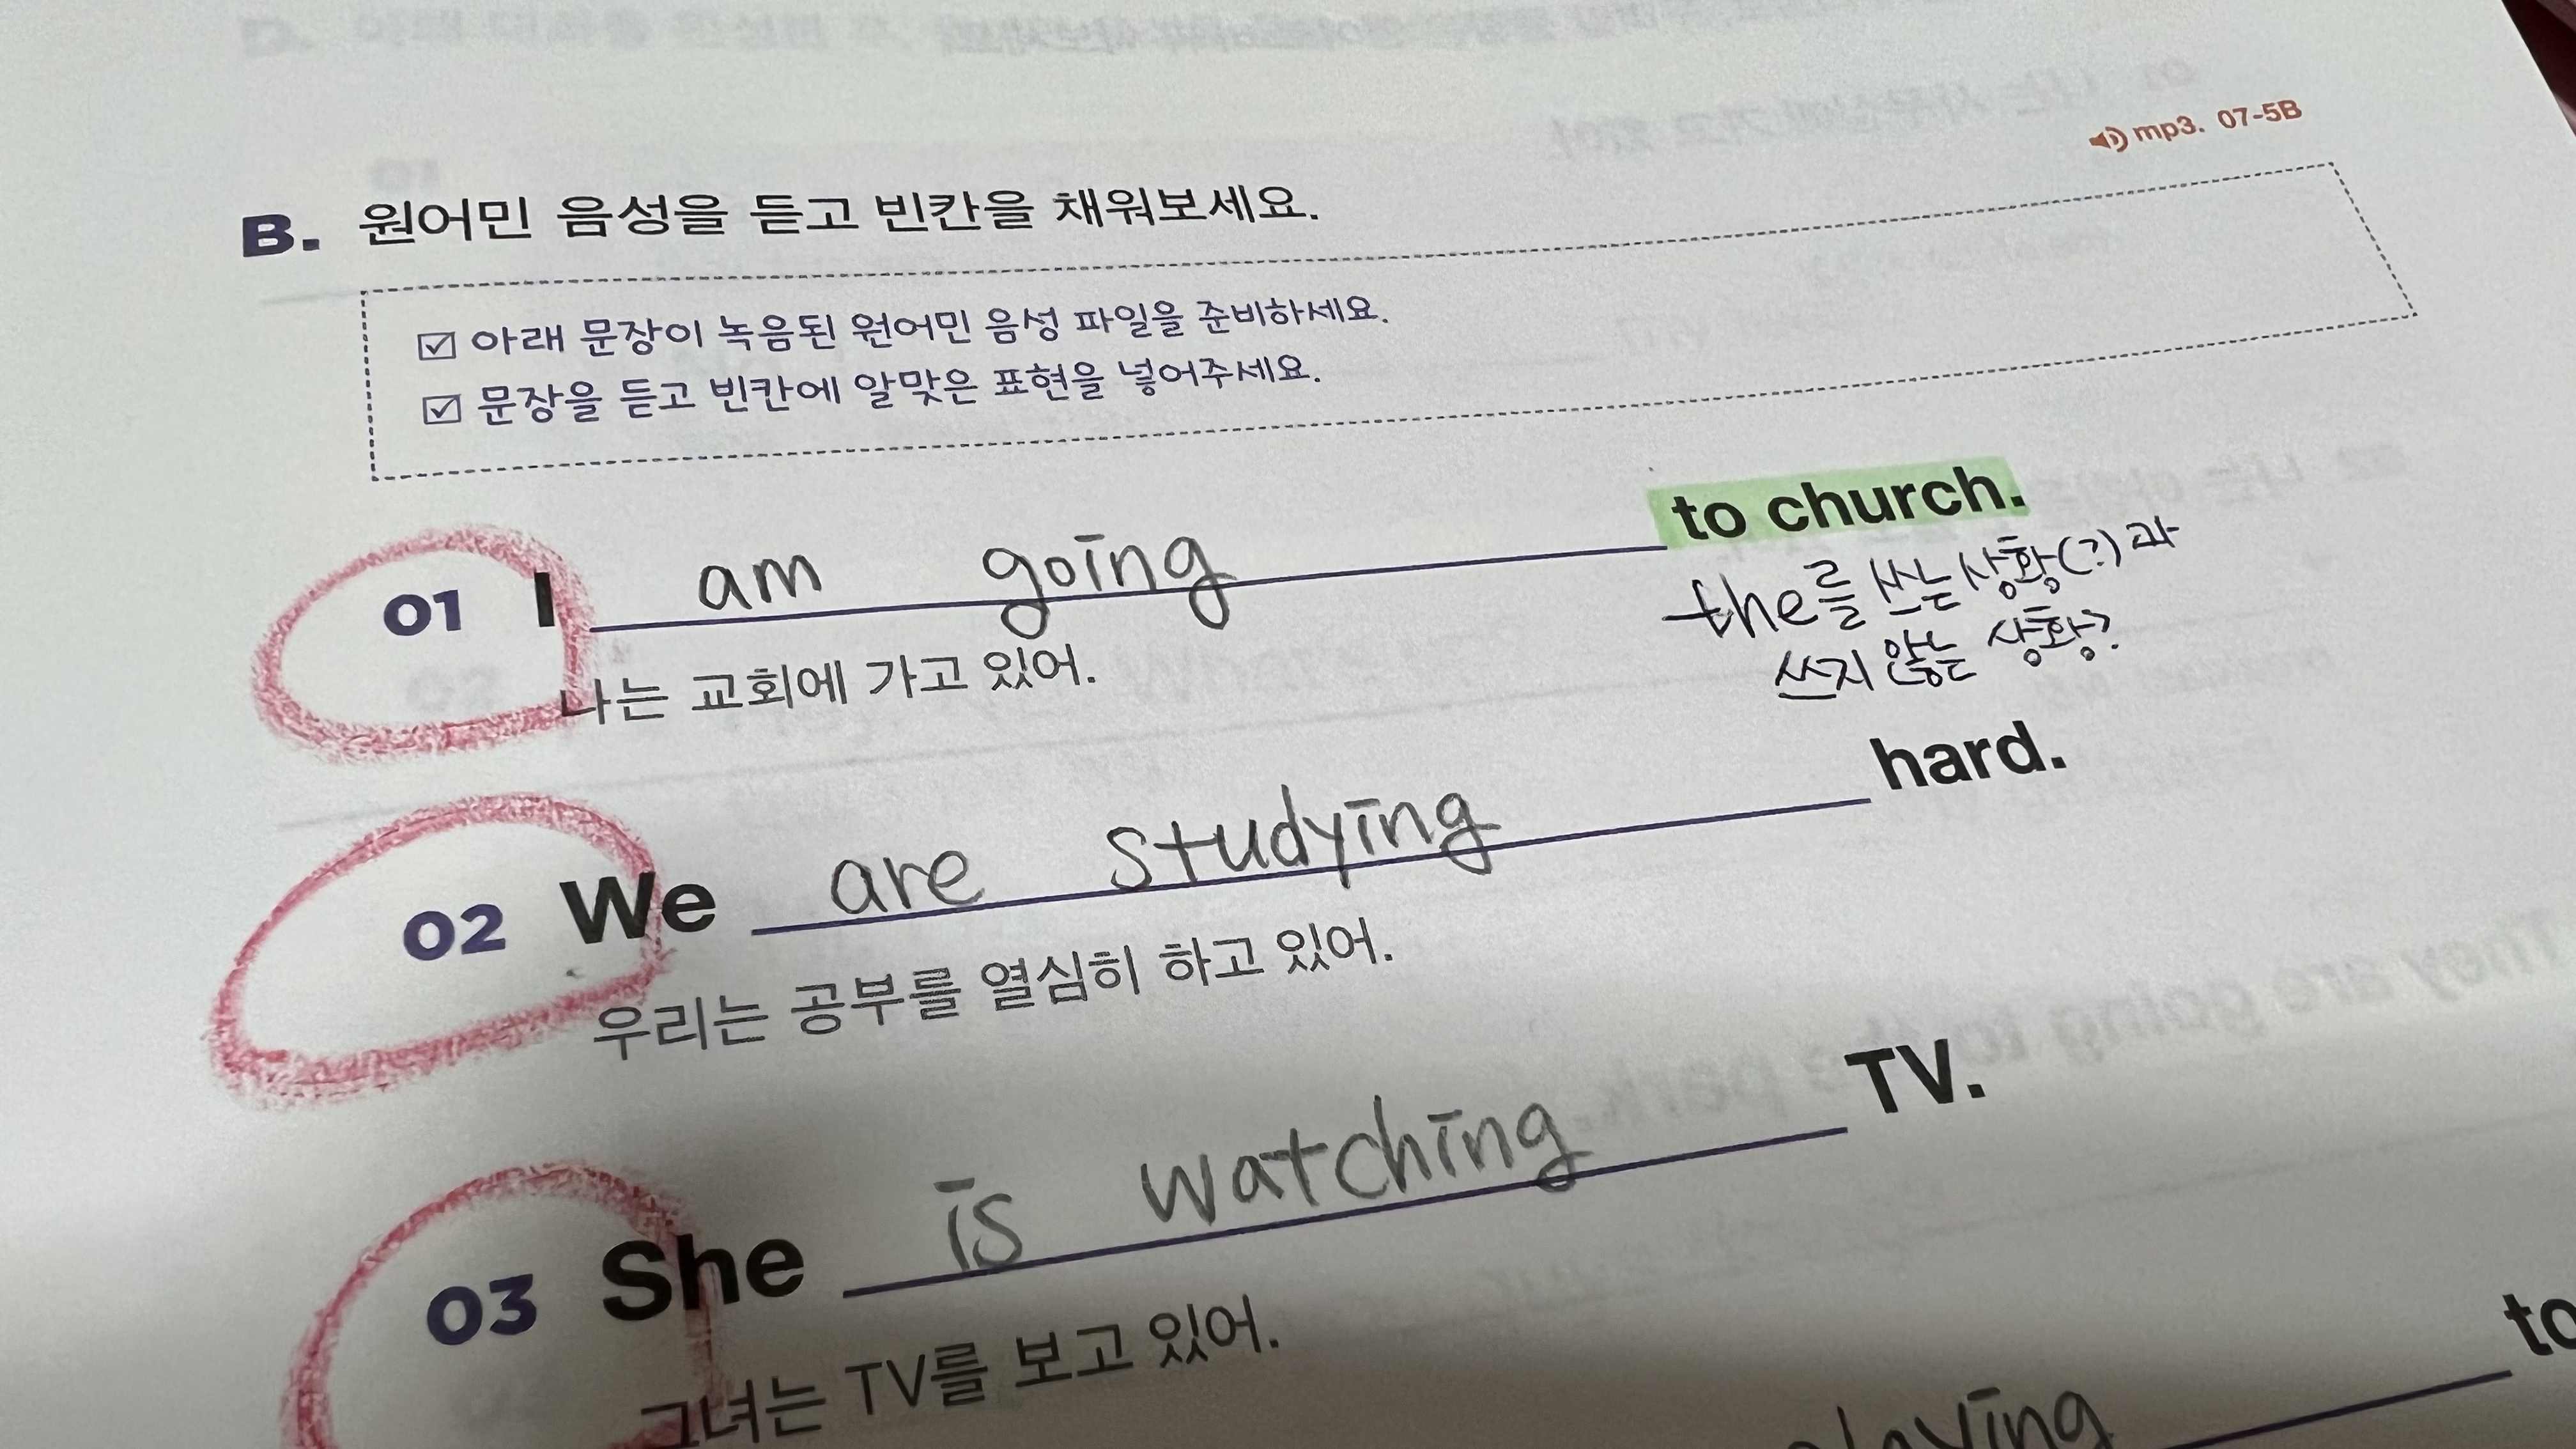 mp3. 07-5B
B. 원어민 음성을 듣고 빈칸을 채워보세요.
아래 문장이 녹음된 원어민 음성 파일을 준비하세요.
문장을 듣고 빈칸에 알맞은 표현을 넣어주세요.
01 I am going to church.
the를 쓰는 상황(?)과
쓰지 않는 상황?
나는 교회에 가고 있어.
02 We are studying hard.
우리는 공부를 열심히 하고 있어.
03 She is watching TV.
그녀는 TV를 보고 있어.
playing to